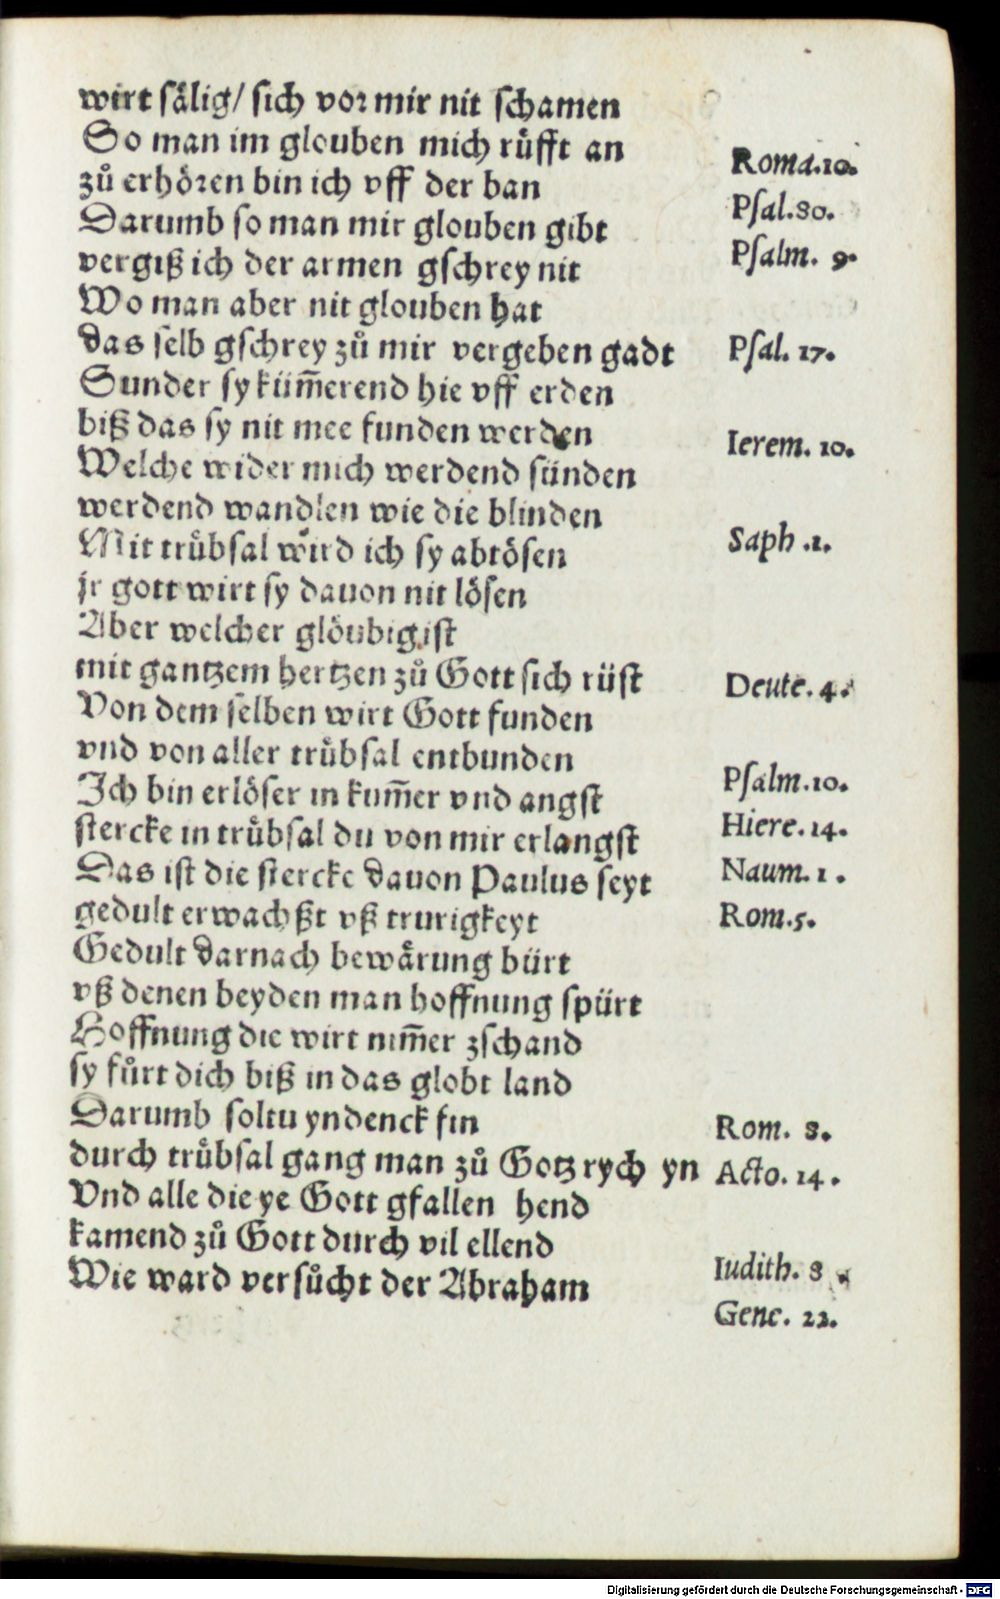 wirt sålig/ sich vor mir nit schamen
So man im glouben mich růfft an
zů erhören bin ich vff der ban
Darumb so man mir glouben gibt
vergiß ich der armen gschrey nit
Wo man aber nit glouben hat
das selb gschrey zů mir vergeben gadt
Sunder sy küm̄erend hie vff erden
biß das sy nit mee funden werden
Welche wider mich werdend sünden
werdend wandlen wie die blinden
Mit trůbsal wird ich sy abtösen
jr gott wirt sy dauon nit lösen
Aber welcher glöubig ist
mit gantzem hertzen zů Gott sich rüst
Von dem selben wirt Gott funden
vnd von aller trůbsal entbunden
Ich bin erlöser in kum̄er vnd angst
stercke in trůbsal du von mir erlangst
Das ist die stercke dauon Paulus seyt
gedult erwachßt vß trurigkeyt
Gedult darnach bewårung bürt
vß denen beyden man hoffnung spürt
Hoffnung die wirt nim̄er zschand
sy fůrt dich biß in das globt land
Darumb soltu yndenck sin
durch trůbsal gang man zů Gotz rych yn
Vnd alle die ye Gott gfallen hend
kamend zů Gott durch vil ellend
Wie ward versůcht der Abraham
Roma.10.
Psal.80.
Psalm. 9.
Psal. 17.
Ierem. 10.
Saph .1.
Deute. 4.
Psalm.10.
Hiere. 14.
Naum. 1.
Rom.5.
Rom. 8.
Acto. 14.
Iudith. 8
Gene. 22.
Digitalisierung gefördert durch die Deutsche Forschungsgemeinschaft - DFG